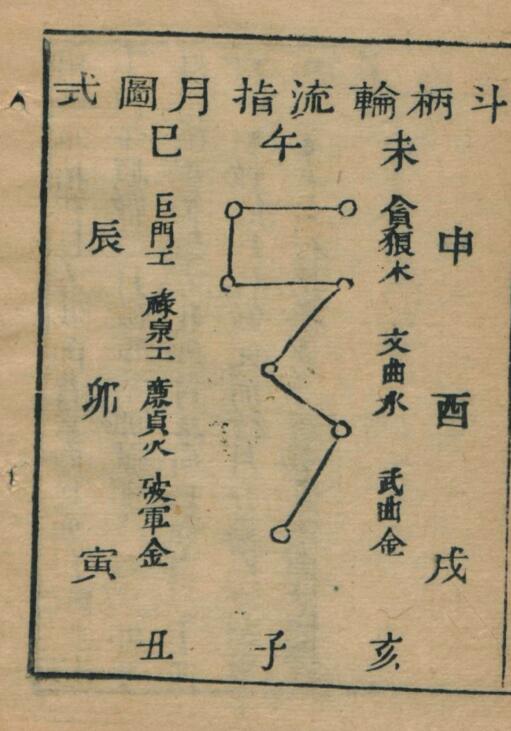 斗柄輪流指月圖式
未
午
巳
申
酉
戌
貪狼木
文曲水
武曲金
巨門工
祿泉工
廉貞火
破軍金
辰
卯
寅
亥
子
丑